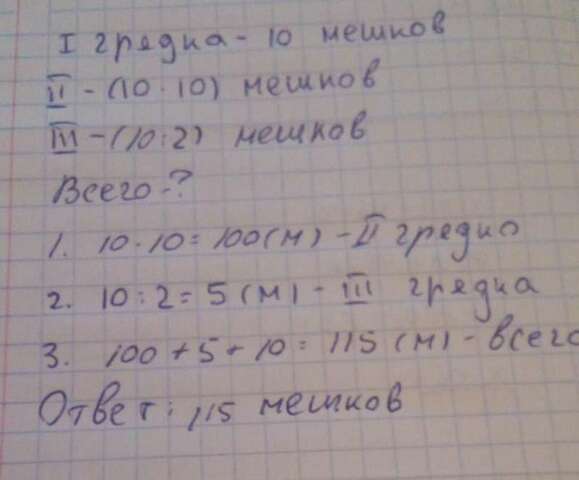 I грядка - 10 мешков
II - (10 · 10) мешков
III - (10 : 2) мешков
Всего - ?
1. 10 · 10 = 100 (м) - II грядка
2. 10 : 2 = 5 (м) - III грядка
3. 100 + 5 + 10 = 115 (м) - всего
Ответ: 115 мешков